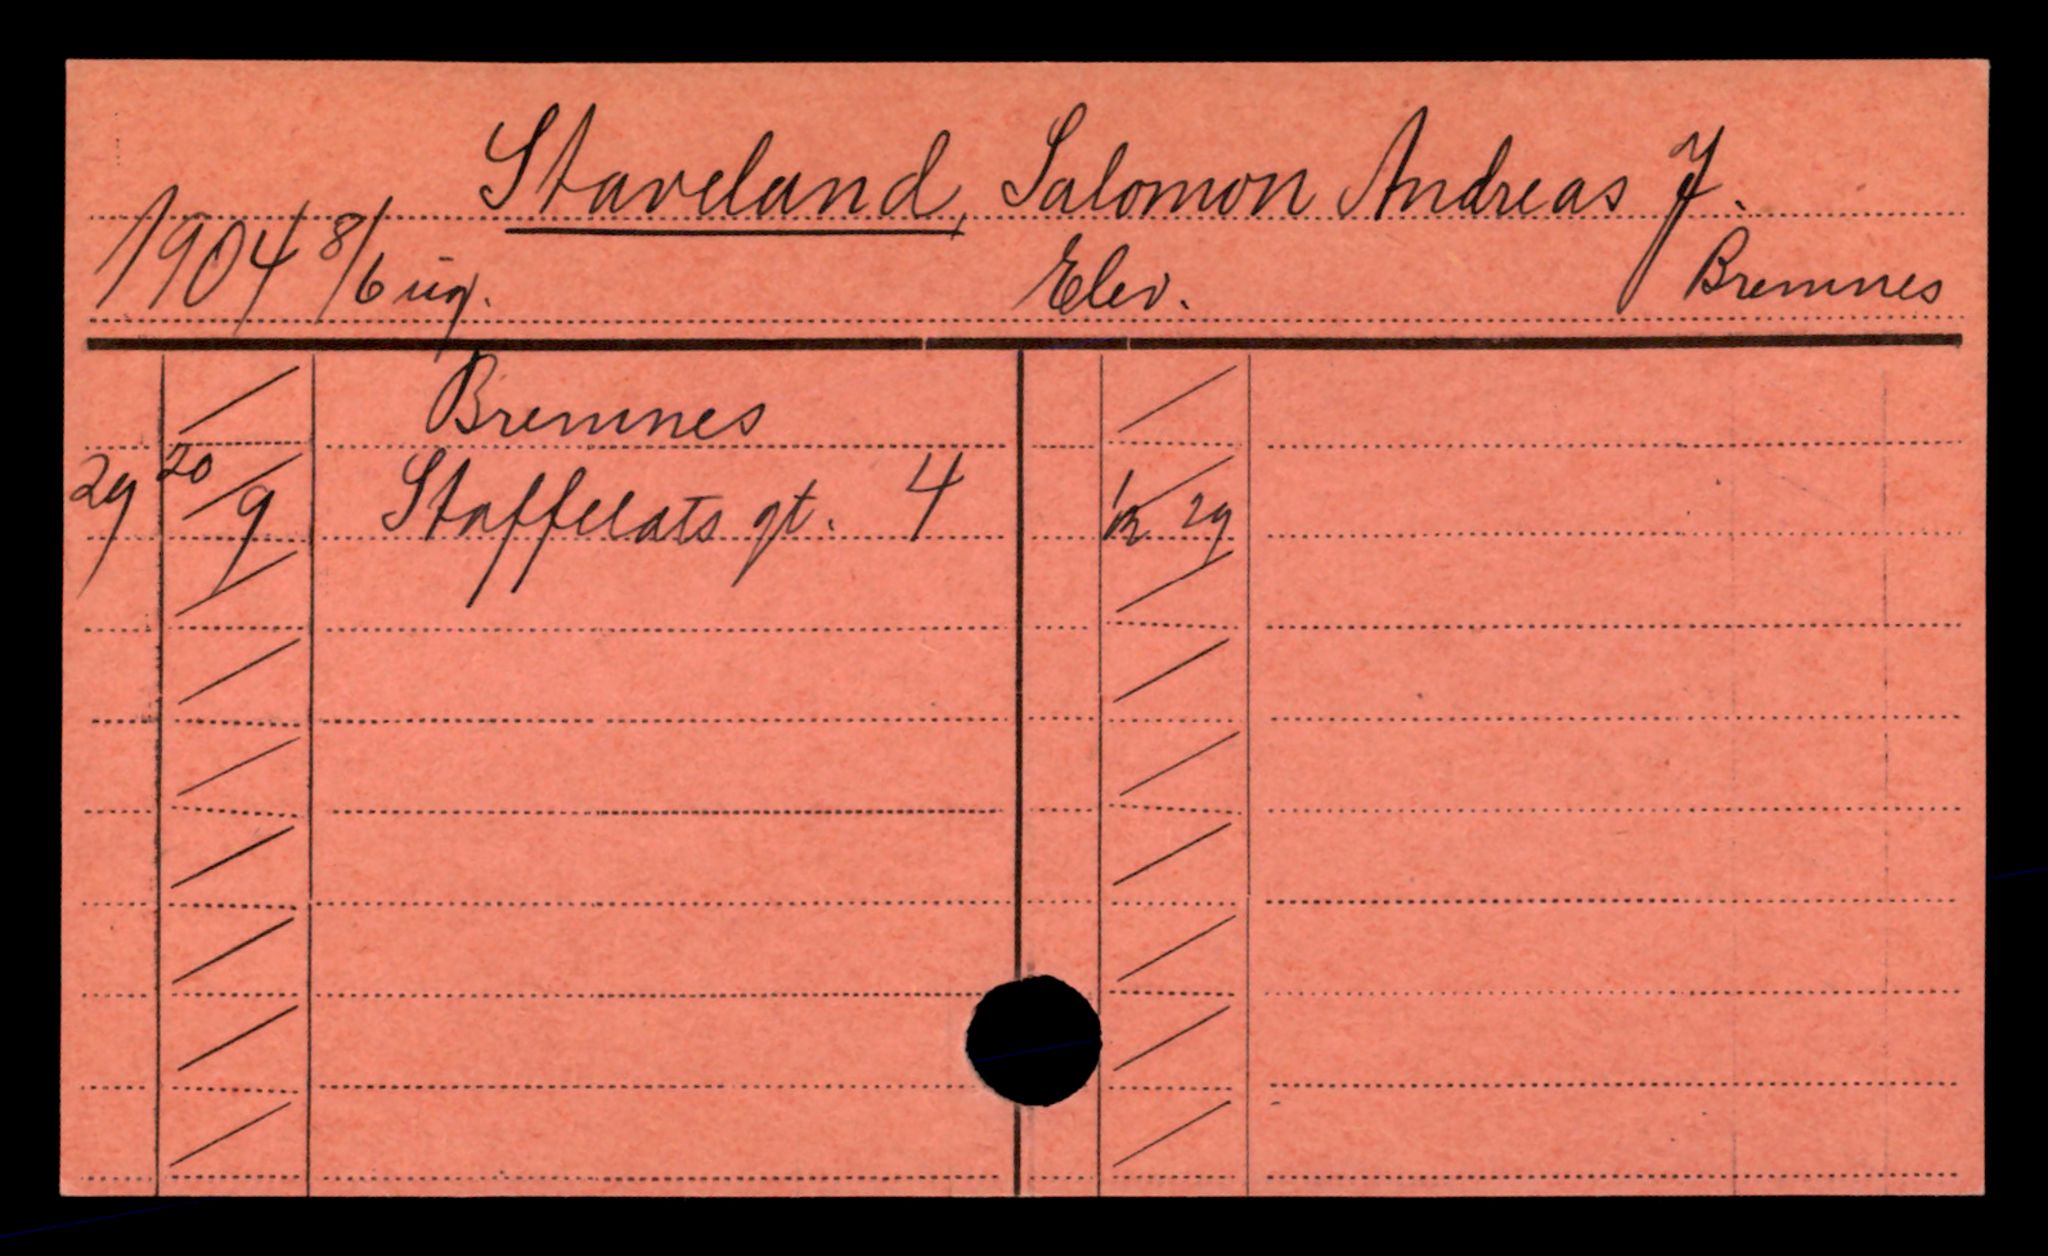 Staveland, Salomon Andreas J.
1904 8/6 ug. Elev. Bremnes
Bremnes
29 20/9 Staffelats gt. 4 1/12 29